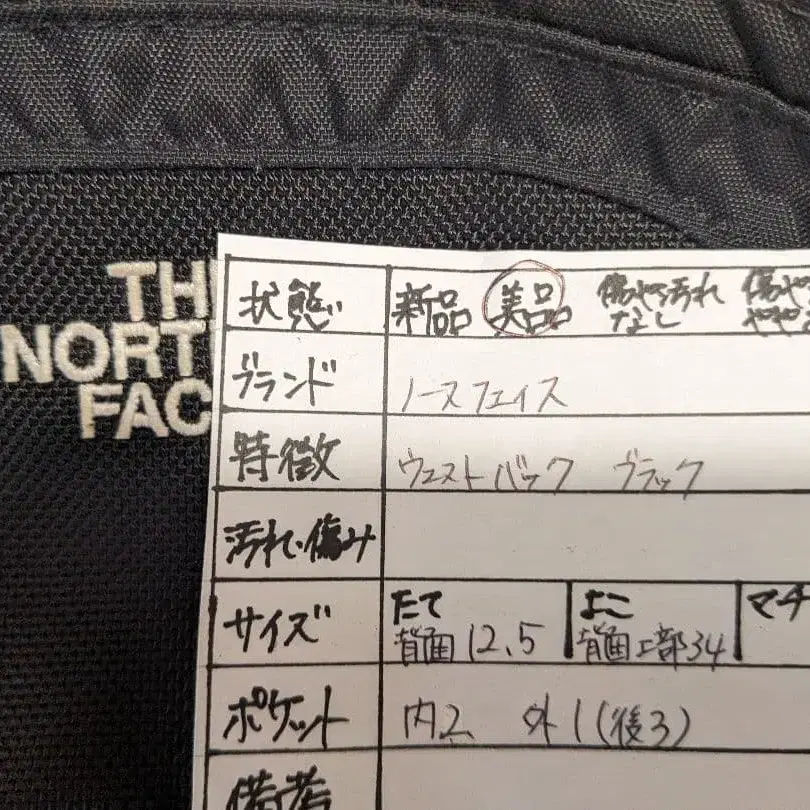 THE
NORTH
FAC
状態 新品 美品 傷や汚れなし 傷や やや
ブランド ノースフェイス
特徴 ウエストバック ブラック
汚れ・傷み
サイズ たて 背面12.5 よこ 背面上部34 マチ
ポケット 内2 外1(後3)
備考